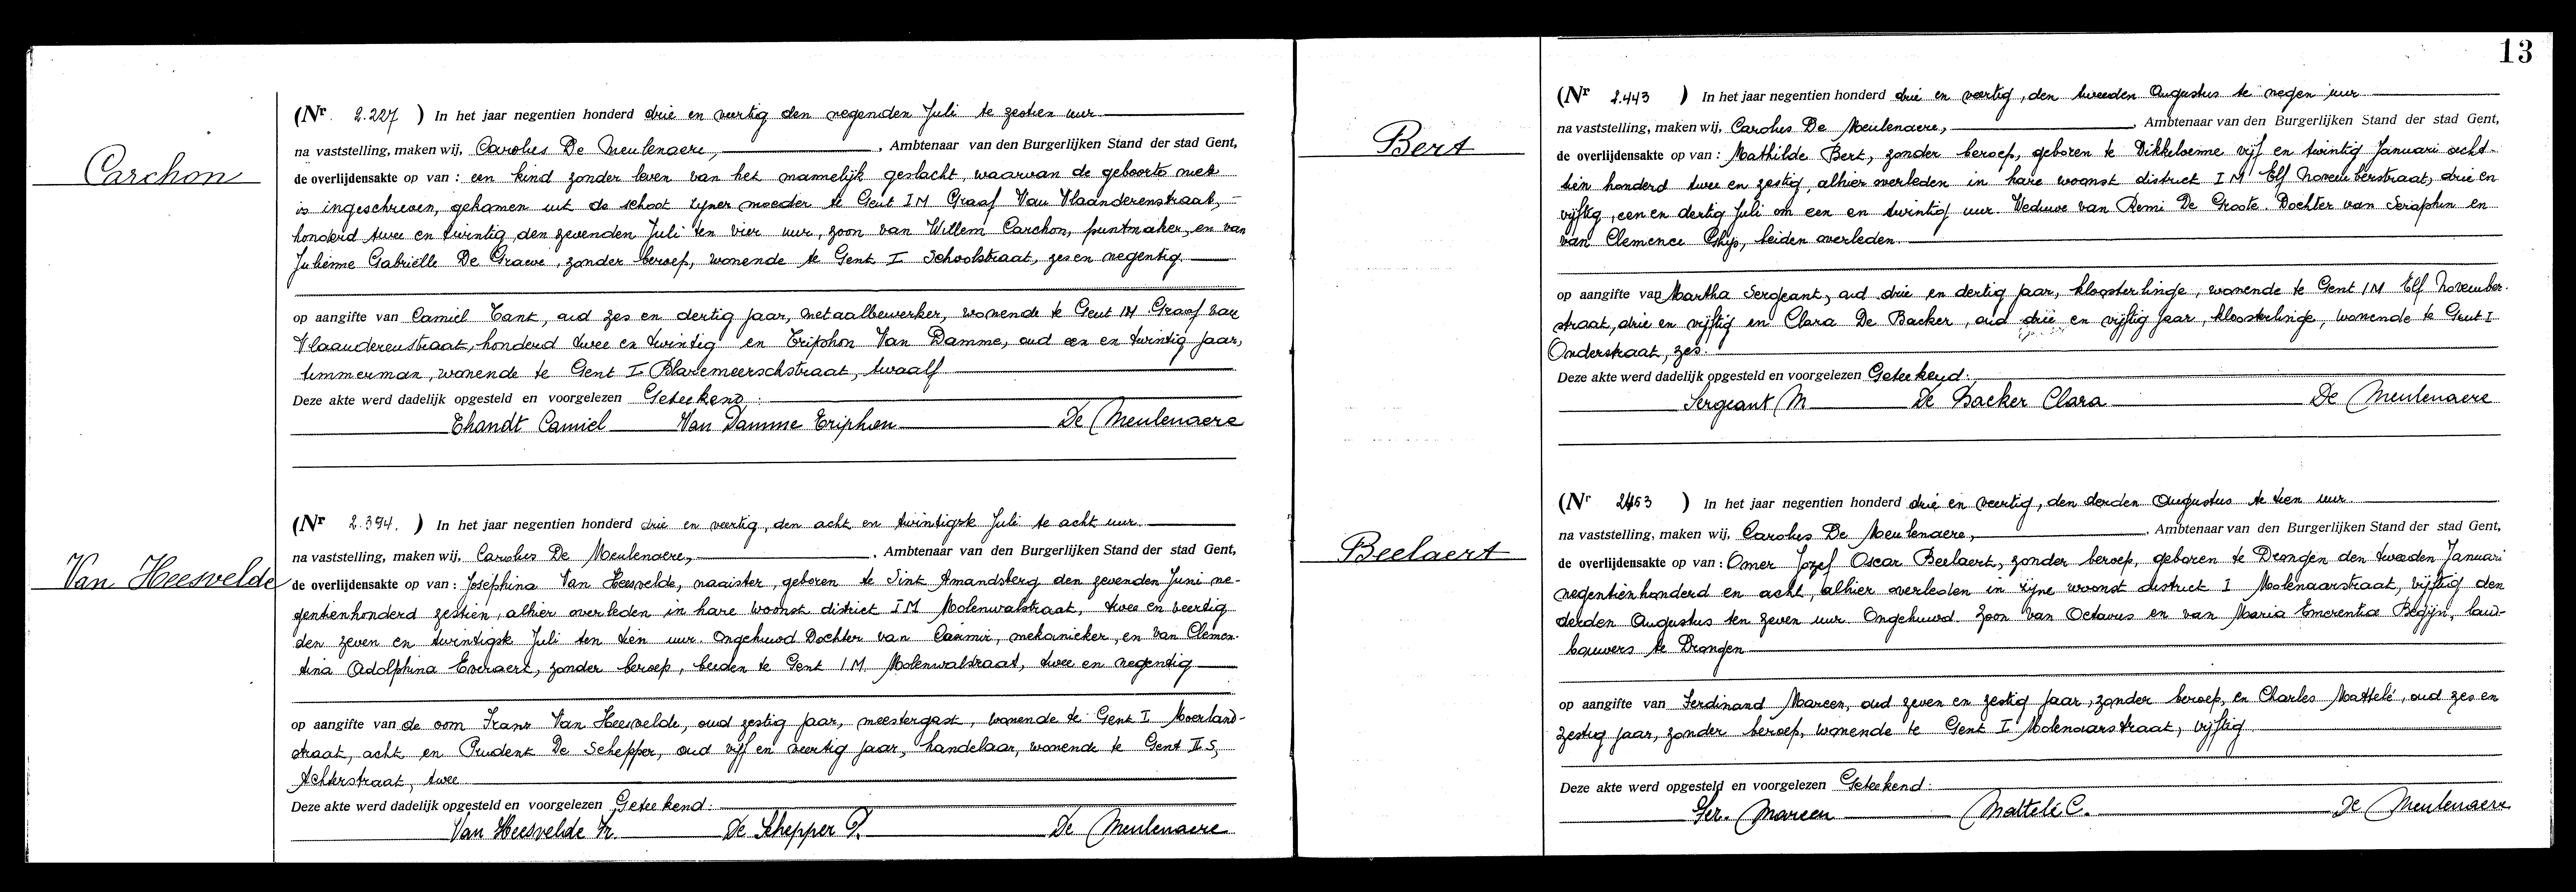 Carchon
(Nr. 2.227 ) In het jaar negentien honderd drie en veertig den negenden Juli te zestien uur
na vaststelling, maken wij, Carolus De Meulenaere, , Ambtenaar van den Burgerlijken Stand der stad Gent,
de overlijdensakte op van : een kind zonder leven van het mannelijk geslacht, waarvan de geboorte niet
is ingeschreven, gekomen uit de schoot zijner moeder te Gent IM Graaf Van Vlaanderenstraat, -
honderd twee en twintig, den zevenden Juli ten vier uur, zoon van Willem Carchon, puntmaker, en van
Julienne Gabriëlle De Graeve, zonder beroep, wonende te Gent I Schoolstraat, zes en negentig.
op aangifte van Camiel Tant, oud zes en dertig jaar, metaalbewerker, wonende te Gent IM Graaf van
Vlaanderenstraat, honderd twee en twintig en Triphon Van Damme, oud een en twintig jaar,
timmerman, wonende te Gent I Blaremeerschstraat, twaalf
Deze akte werd dadelijk opgesteld en voorgelezen Geteekend :
Thandt Camiel Van Damme Triphon De Meulenaere
Van Heesvelde
(Nr 2.394. ) In het jaar negentien honderd drie en veertig, den acht en twintigste Juli te acht uur.
na vaststelling, maken wij, Carolus De Meulenaere, , Ambtenaar van den Burgerlijken Stand der stad Gent,
de overlijdensakte op van : Josephina Van Heesvelde, naaister, geboren te Sint Amandsberg den zevenden Juni ne-
gentienhonderd zestien, alhier overleden in hare woonst district IM Molenwalstraat, twee en veertig
den zeven en twintigste Juli ten tien uur. Ongehuwd Dochter van Casimir, mekanieker, en van Clemen-
tina Adolphina Everaert, zonder beroep, beiden te Gent IM. Molenwalstraat, twee en negentig
op aangifte van de oom Frans Van Heesvelde, oud zestig jaar, meestergast, wonende te Gent I Moerland-
straat, acht en Prudent De Schepper, oud vijf en veertig jaar, handelaar, wonende te Gent II S,
Achterstraat, twee
Deze akte werd dadelijk opgesteld en voorgelezen Geteekend :
Van Heesvelde Fr. De Schepper P. De Meulenaere
13
Bert
(Nr 2.443 ) In het jaar negentien honderd drie en veertig, den tweeden Augustus te negen uur
na vaststelling, maken wij, Carolus De Meulenaere, , Ambtenaar van den Burgerlijken Stand der stad Gent,
de overlijdensakte op van : Mathilde Bert, zonder beroep, geboren te Dikkelvenne vijf en twintig Januari acht-
tien honderd twee en zestig, alhier overleden in hare woonst district I M Elf Novemberstraat, drie en
vijftig, een en dertig Juli om een en twintig uur. Weduwe van Remi De Groote. Dochter van Seraphin en
van Clemence Ghijs, beiden overleden.
op aangifte van Martha Sergeant, oud drie en dertig jaar, kloosterlinge, wonende te Gent IM Elf November-
straat, drie en vijftig en Clara De Backer, oud drie en vijftig jaar, kloosterlinge, wonende te Gent I
Onderstraat, zes.
Deze akte werd dadelijk opgesteld en voorgelezen Geteekend :
Sergeant M De Backer Clara De Meulenaere
Beelaert
(Nr 2453 ) In het jaar negentien honderd drie en veertig, den derden Augustus te tien uur
na vaststelling, maken wij, Carolus De Meulenaere, , Ambtenaar van den Burgerlijken Stand der stad Gent,
de overlijdensakte op van : Omer Jozef Oscar Beelaert, zonder beroep, geboren te Drongen den tweeden Januari
negentienhonderd en acht, alhier overleden in zijne woonst district I Molenaarstraat, vijftig den
derden Augustus ten zeven uur. Ongehuwd. Zoon van Octavus en van Maria Emerentia Begijn, land-
bouwers te Drongen
op aangifte van Ferdinand Mareen, oud zeven en zestig jaar, zonder beroep, en Charles Mattelé, oud zes en
zestig jaar, zonder beroep, wonende te Gent I Molenaarstraat, vijftig
Deze akte werd dadelijk opgesteld en voorgelezen Geteekend :
Fer. Mareen Mattelé C. De Meulenaere